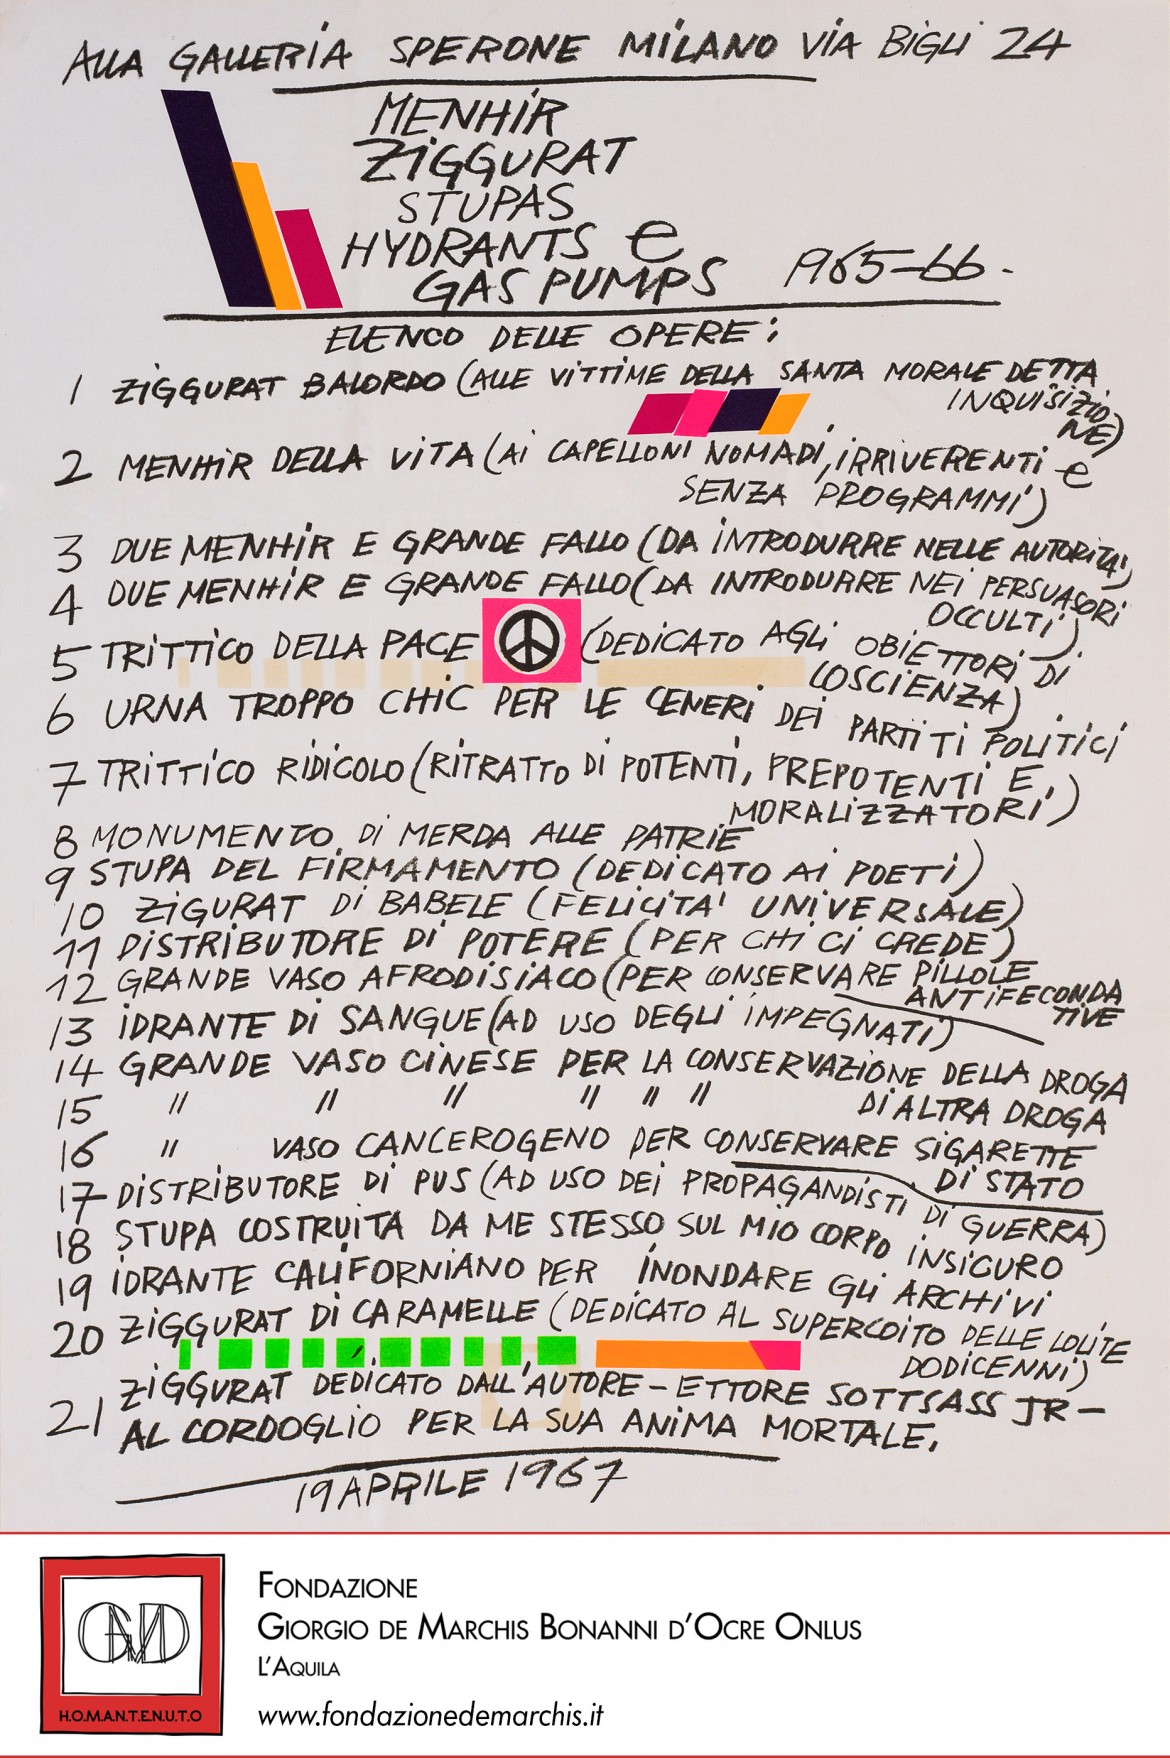 ALLA GALLERIA SPERONE MILANO VIA BIGLI 24
MENHIR
ZIGGURAT
STUPAS
HYDRANTS e
GAS PUMPS 1965-66.
ELENCO DELLE OPERE:
1 ZIGGURAT BALORDO (ALLE VITTIME DELLA SANTA MORALE DETTA
INQUISIZIO
NE)
2 MENHIR DELLA VITA (AI CAPELLONI NOMADI, IRRIVERENTI e
SENZA PROGRAMMI)
3 DUE MENHIR E GRANDE FALLO (DA INTRODURRE NELLE AUTORITA')
4 DUE MENHIR E GRANDE FALLO (DA INTRODURRE NEI PERSUASORI
OCCULTI)
5 TRITTICO DELLA PACE (DEDICATO AGLI OBIETTORI DI
COSCIENZA)
6 URNA TROPPO CHIC PER LE CENERI DEI PARTITI POLITICI
7 TRITTICO RIDICOLO (RITRATTO DI POTENTI, PREPOTENTI E
MORALIZZATORI)
8 MONUMENTO DI MERDA ALLE PATRIE
9 STUPA DEL FIRMAMENTO (DEDICATO AI POETI)
10 ZIGURAT DI BABELE (FELICITA' UNIVERSALE)
11 DISTRIBUTORE DI POTERE (PER CHI CI CREDE)
12 GRANDE VASO AFRODISIACO (PER CONSERVARE PILLOLE
ANTIFECONDA
TIVE
13 IDRANTE DI SANGUE (AD USO DEGLI IMPEGNATI)
14 GRANDE VASO CINESE PER LA CONSERVAZIONE DELLA DROGA
15 " " " " " " DI ALTRA DROGA
16 " VASO CANCEROGENO PER CONSERVARE SIGARETTE
DI STATO
17 DISTRIBUTORE DI PUS (AD USO DEI PROPAGANDISTI DI GUERRA)
18 STUPA COSTRUITA DA ME STESSO SUL MIO CORPO INSICURO
19 IDRANTE CALIFORNIANO PER INONDARE GLI ARCHIVI
20 ZIGGURAT DI CARAMELLE (DEDICATO AL SUPERCOITO DELLE LOLITE
DODICENNI)
21 ZIGGURAT DEDICATO DALL'AUTORE - ETTORE SOTTSASS JR -
AL CORDOGLIO PER LA SUA ANIMA MORTALE.
19 APRILE 1967
GMD
H.O.M.A.N.T.E.N.U.T.O
FONDAZIONE
GIORGIO DE MARCHIS BONANNI D'OCRE ONLUS
L'AQUILA
www.fondazionedemarchis.it